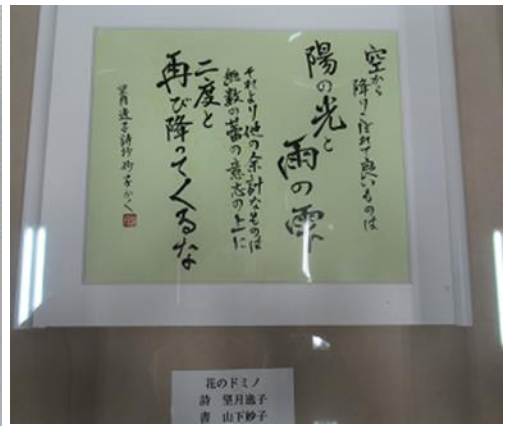 空から
降りこぼれて良いものは
陽の光と
雨の雫
それより他の余計なものは
無数の蕾の意志の上に
二度と
再び降ってくるな
望月逸子詩抄 妙子かく
花のドミノ
詩 望月逸子
書 山下妙子